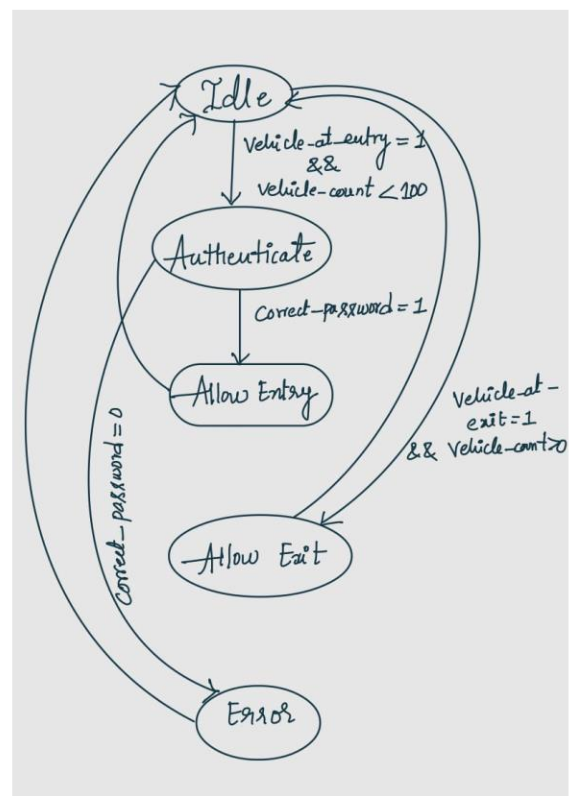 Idle
Vehicle_at_entry = 1
&&
Vehicle_count < 100
Authenticate
Correct_password = 1
Allow Entry
Vehicle_at_
exit=1
&& Vehicle_count>0
Correct_password = 0
Allow Exit
Error